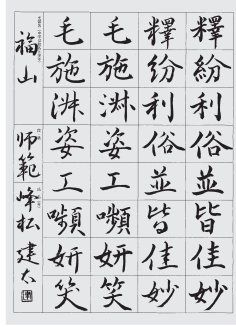 釋紛利俗並皆佳妙
釋紛利俗並皆佳妙
毛施淑姿工嚬妍笑
毛施淑姿工嚬妍笑
福山
师範 峰松 建太